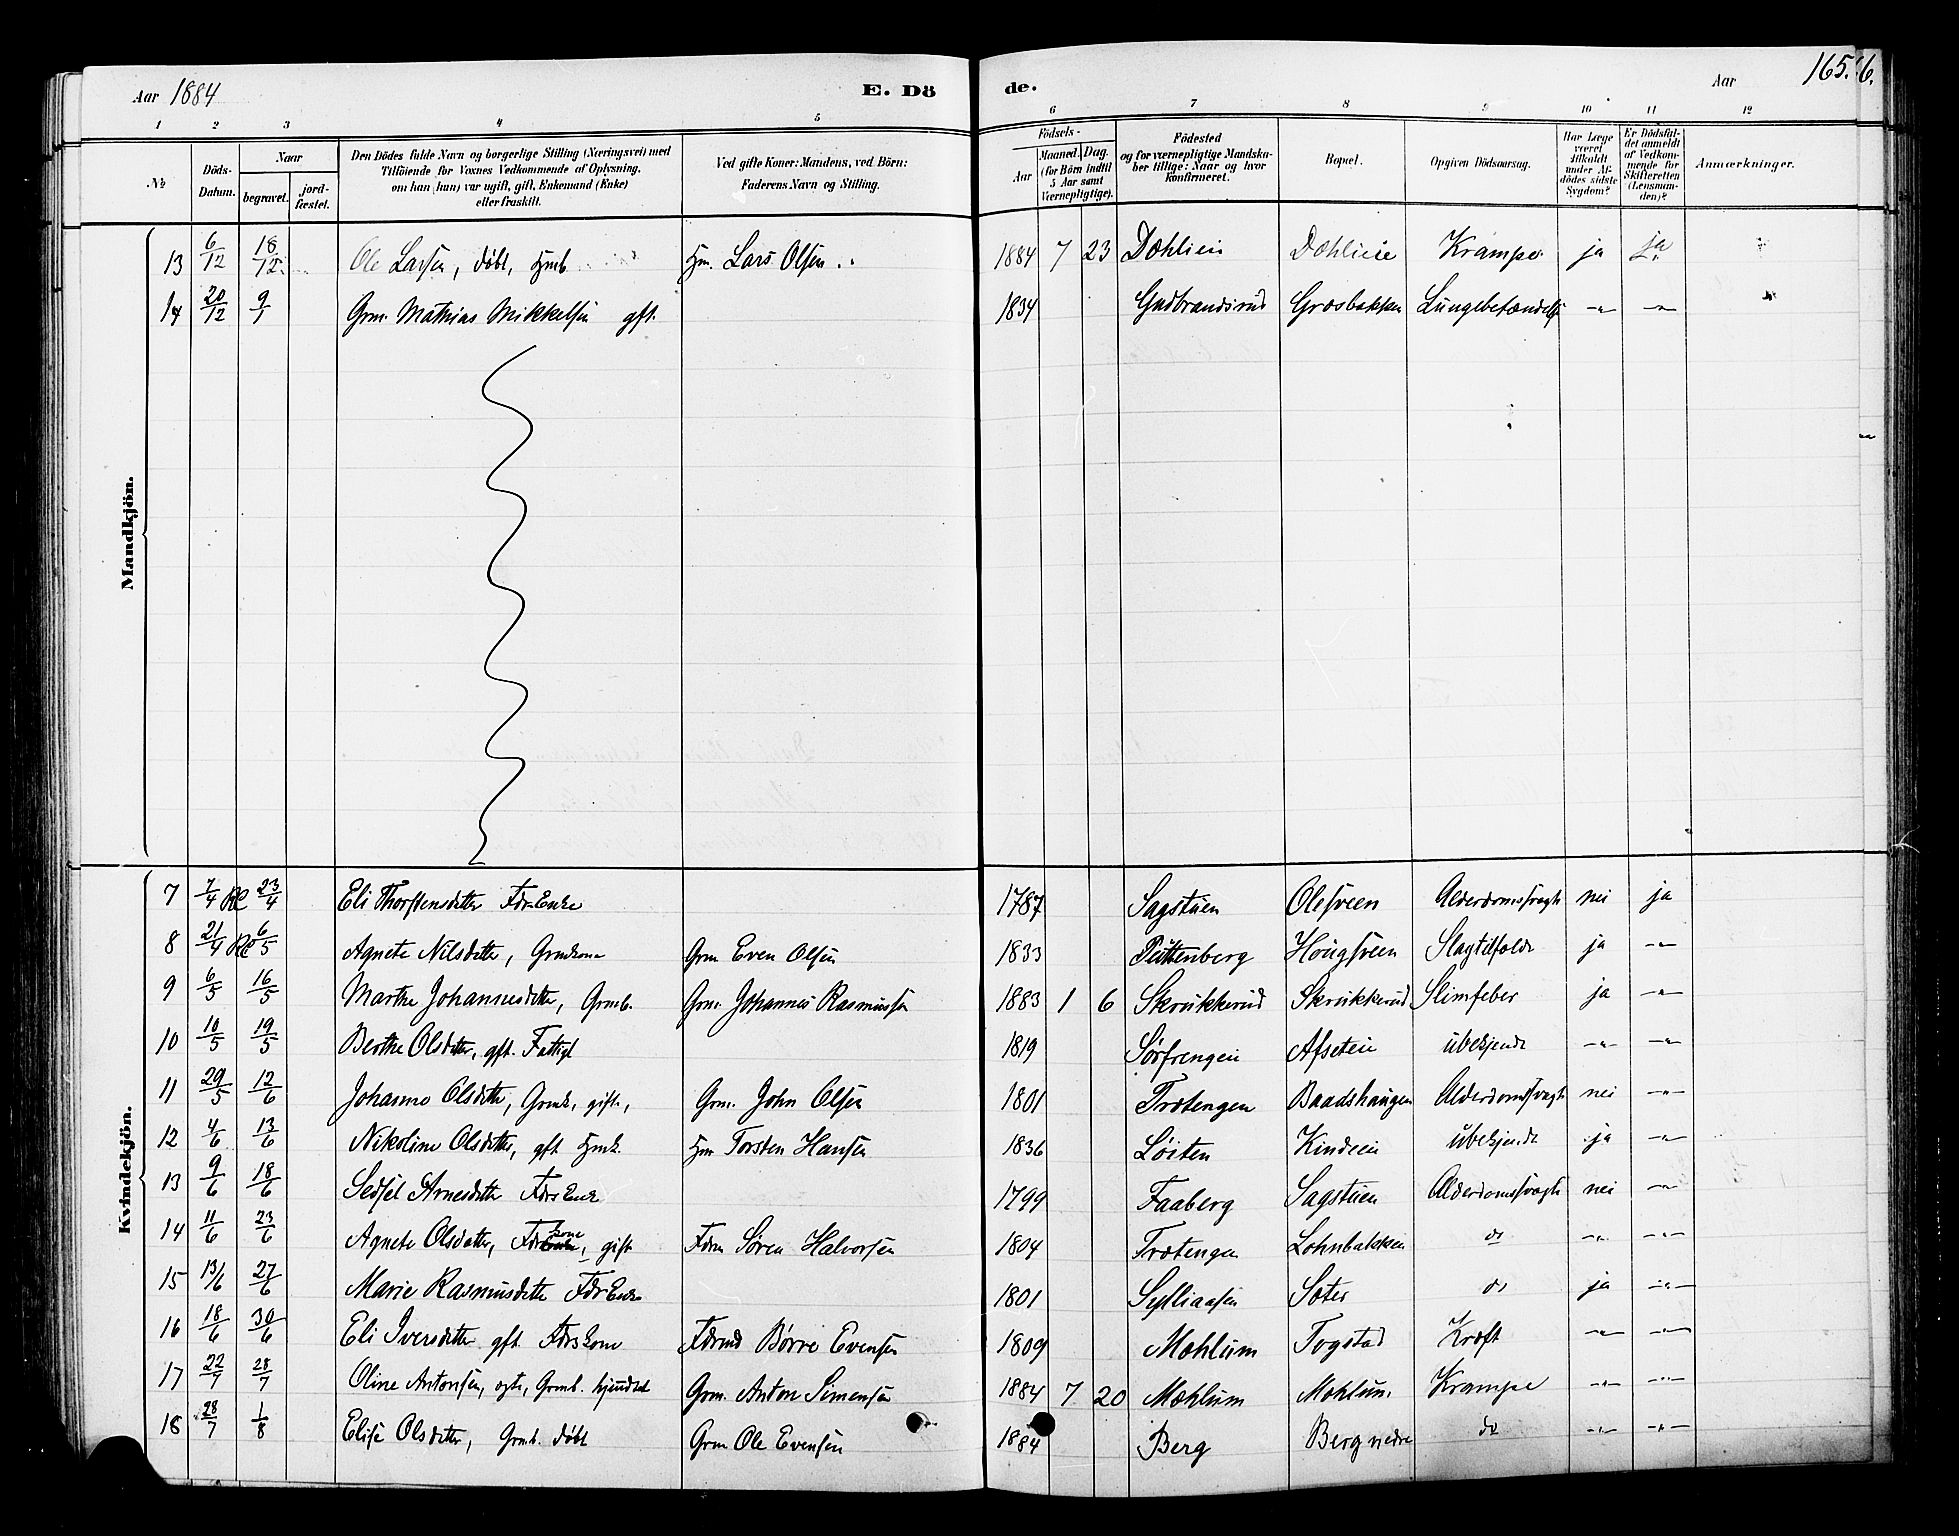 Aar 1884
E. Dö
de.
Aar
165.
6.
1 2 3 4 5 6 7 8 9 10 11 12
№
Döds-Datum.
Naar
begravet.
jord-fæstet.
Den Dödes fulde Navn og borgerlige Stilling (Næringsvei) med
Tilföiende for Voxnes Vedkommende af Oplysning,
om han (hun) var ugift, gift, Enkemand (Enke)
eller fraskilt.
Ved gifte Koner: Mandens, ved Börn:
Faderens Navn og Stilling.
Födsels-
Aar
Maaned. Dag.
(for Börn indtil
5 Aar samt
Værnepligtige).
Födested
og for værnepligtige Mandska-
ber tillige: Naar og hvor
konfirmeret.
Bopæl.
Opgiven Dödsaarsag.
Har Læge
været
tilkaldt
under Af-
dödes sidste
Sygdom?
Er Dödsfal-
det anmeldt
af Vedkom-
mende for
Skifteretten
(Lensman-
den)?
Anmærkninger.
Mandkjön.
13 6/12 18/12 Ole Larsen, døbt, Hmb. Hm. Lars Olsen 1884 7 23 Dæhliei Dæhlieie Krampe ja ja
14 20/12 9/1 Grm. Mathias Mikkelsen gft. 1834 Gudbrandsrud Græsbakken Lungebetændelse -"- -"-
Kvindekjön.
7 7/4 23/4 Eli Thorstensdatter Fdr Enke 1787 Sagstuen Olesveen Alderdomssvagh nei ja
8 21/4 6/5 Agnete Nilsdatter, Grmkone Grm Even Olsen 1833 Puttenberg Hougsveen Slagtilfælde ja -"-
9 6/5 16/5 Marthe Johannesdatter, Grmb. Grm. Johannes Rasmussen 1883 1 6 Skrukkerud Skrukkerud Slimfeber ja -"-
10 10/5 19/5 Berthe Olsdatter, gft. Fattigl 1819 Sørfrengen Afseteie ubekjendt -"- -"-
11 29/5 12/6 Johanne Olsdatter, Grmk, gift, Grm. John Olsen 1801 Trætengen Baadshaugen Alderdomssvagh nei -"-
12 4/6 13/6 Nikoline Olsdatter, gft Hmk. Hm Torsten Hansen 1836 Løiten Kindeie ubekjendt ja -"-
13 9/6 18/6 Sedsel Arnesdatter Fdrs Enke 1799 Faaberg Sagstuen Alderdomssvagh nei -"-
14 11/6 23/6 Agnete Olsdatter, Fdrkone, gift Fdrm Søren Halvorsen 1804 Trætengen Lohnbakken do -"- -"-
15 13/6 27/6 Marie Rasmusdatter Fdr Enke 1801 Sylliaasen Sæter do ja -"-
16 18/6 30/6 Eli Iversdatter gft. Fdrskone Fdrmd Børre Evensen 1809 Mæhlum Togstad Kræft -"- -"-
17 22/7 28/7 Oline Antonsen, ægte, Grmb. hjemdøbt Grm. Anton Simensen 1884 7 20 Mæhlum Mæhlum Krampe -"- -"-
18 28/7 1/8 Elise Olsdatter, Grmb. døbt Grm Ole Evensen 1884 Berg Berg nedre do -"- -"-